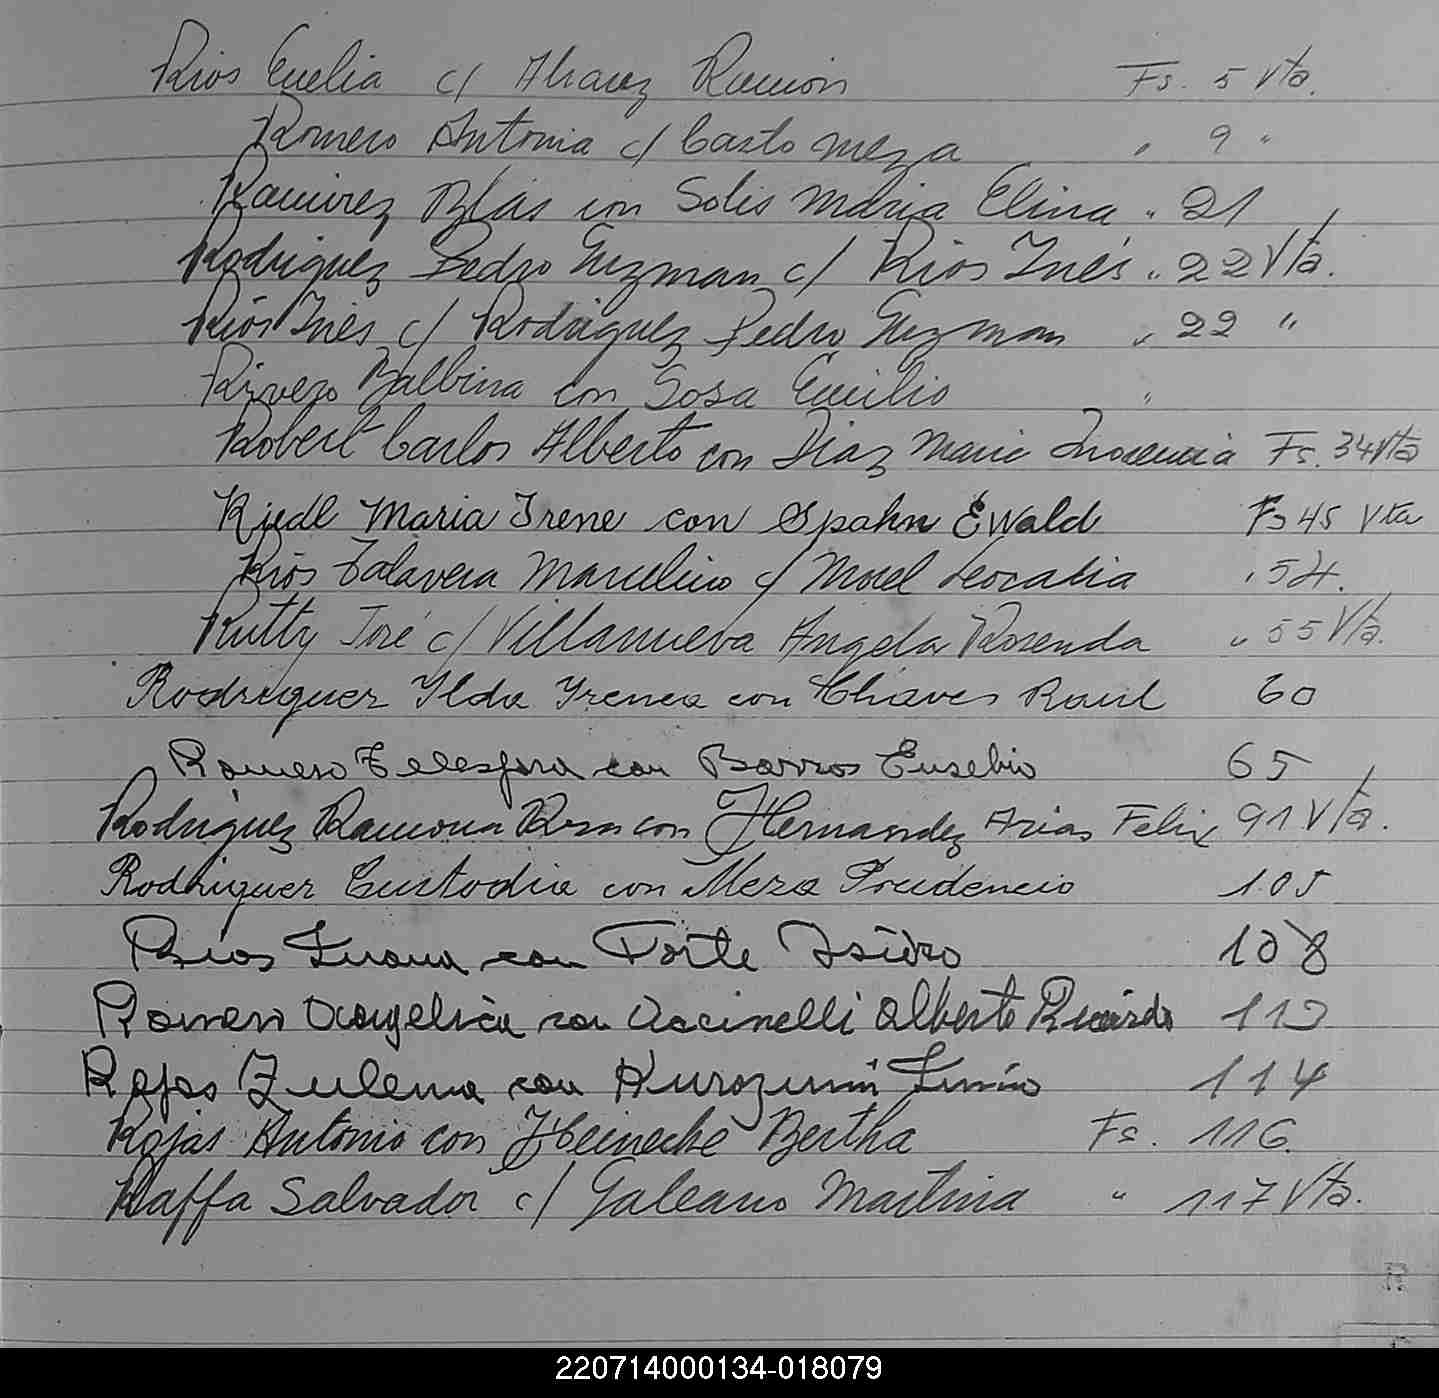 Rios Emelia c/ Alvarez Ramón Fs. 5 Vta.
Romero Antonia c/ Casto Meza " 9 "
Ramirez Blás con Solis Maria Elina " 21
Rodriguez Pedro Guzman c/ Rios Inés " 22 Vta.
Ríos Inés c/ Rodriguez Pedro Guzman " 22 "
Rivero Balbina con Sosa Emilio "
Robert Carlos Alberto con Diaz Maria Inocencia Fs. 34 Vta
Riedl Maria Irene con Spahn Ewald Fs 45 Vta
Ríos Talavera Marcelino c/ Morel Leocadia " 54.
Rutty José c/ Villanueva Angela Rosenda " 55 Vta.
Rodriguez Ilda Irenea con Chaves Raul 60
Romero Telesfora con Barrios Eusebio 65
Rodriguez Ramona Rosa con Hernandez Arias Felix 91 Vta.
Rodriguez Custodia con Meza Prudencio 105
Rios Juana con Forte Isidro 108
Romero Angelica con Accinelli Alberto Ricardo 113
Rojas Zulema con Kurozumi 114
Rojas Antonio con Heinecke Bertha Fs. 116
Raffa Salvador c/ Galeano Martina " 117 Vta.
220714000134-018079